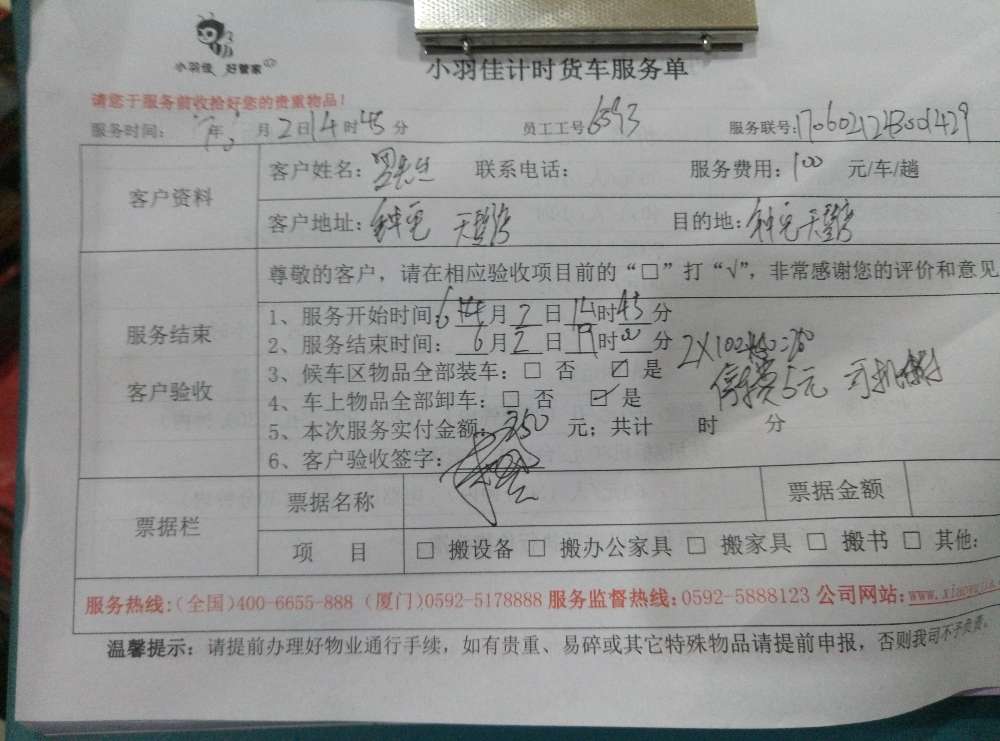 小羽佳 好管家
小羽佳计时货车服务单
请您于服务前收拾好您的贵重物品!
服务时间: 年 月2日14时45分 员工工号6593 服务联号:
客户资料 客户姓名: 联系电话: 服务费用:100 元/车/趟
客户地址: 目的地:
尊敬的客户,请在相应验收项目前的“□”打“√”,非常感谢您的评价和意见
服务结束
客户验收
1、服务开始时间: 月 2 日 14时45分
2、服务结束时间: 6月 2 日 时 分
3、候车区物品全部装车:□ 否 ☑ 是
4、车上物品全部卸车:□ 否 ☑ 是
停车费5元 司机
5、本次服务实付金额: 250 元;共计 时 分
6、客户验收签字:
票据栏 票据名称 票据金额
项 目 □ 搬设备 □ 搬办公家具 □ 搬家具 □ 搬书 □ 其他:
服务热线:(全国)400-6655-888 (厦门)0592-5178888 服务监督热线:0592-5888123 公司网站:
温馨提示:请提前办理好物业通行手续,如有贵重、易碎或其它特殊物品请提前申报,否则我司不予负责。